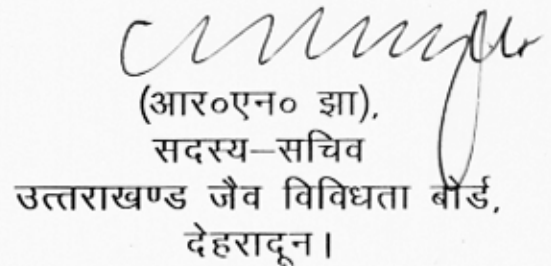 (आर०एन० झा),
सदस्य–सचिव
उत्तराखण्ड जैव विविधता बोर्ड,
देहरादून।